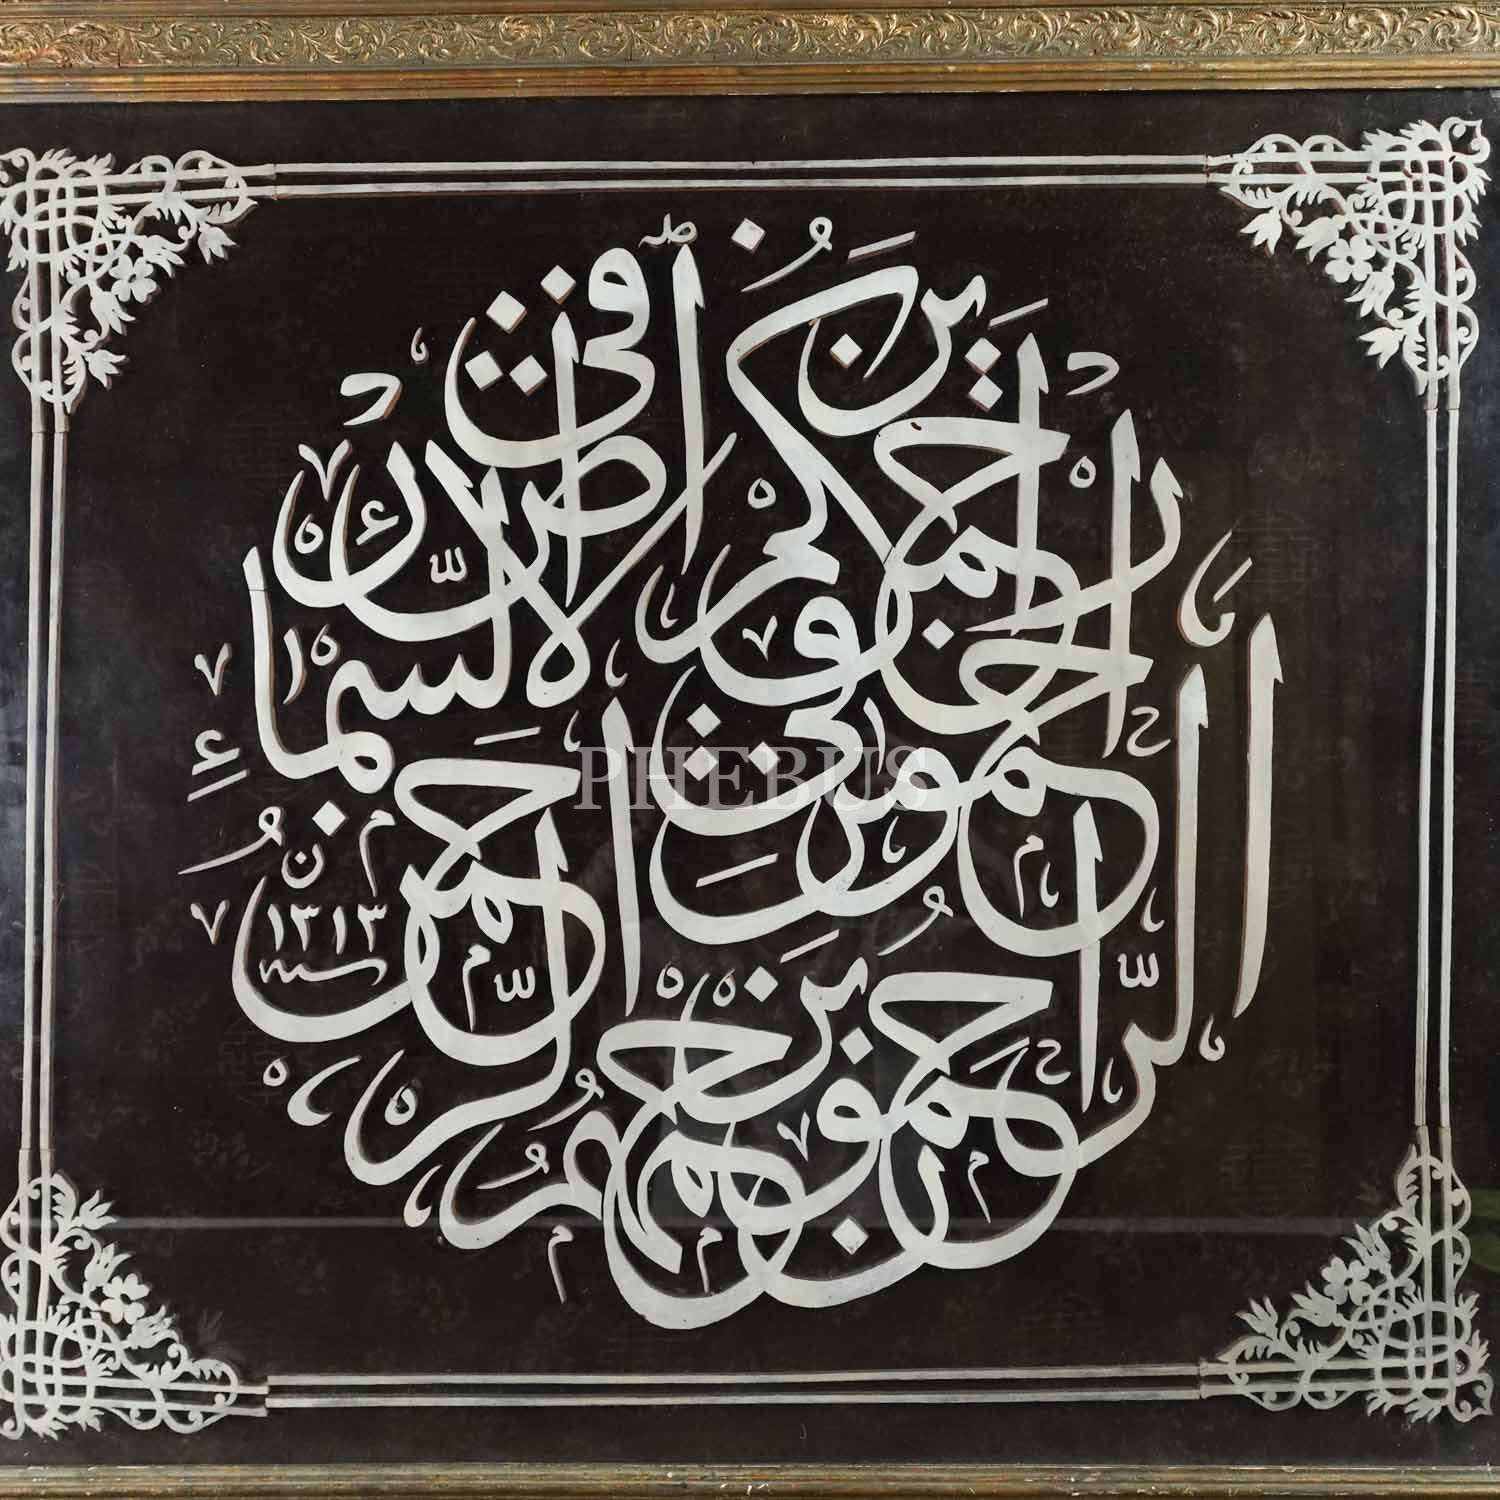 الرَّاحِمُونَ يَرْحَمُهُمُ الرَّحْمٰنُ
اِرْحَمُوا مَنْ فِي الْاَرْضِ
يَرْحَمْكُمْ مَنْ فِي السَّمَاءِ
سنه ١٣١٣
PHEBUS